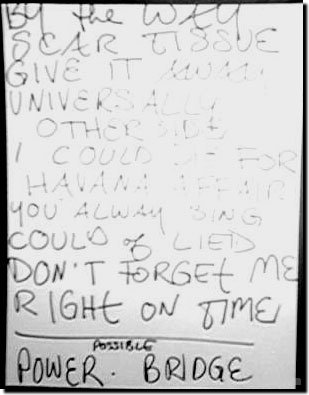 By the WAY
SCAR TISSUE
GIVE IT AWAY
UNIVERSALLY
OTHERSIDE
I COULD DIE FOR
HAVANA AFFAIR
YOU ALWAY SING
COULD of LIED
DON'T FORGET ME
RIGHT ON TIME
POSSIBLE
POWER. BRIDGE